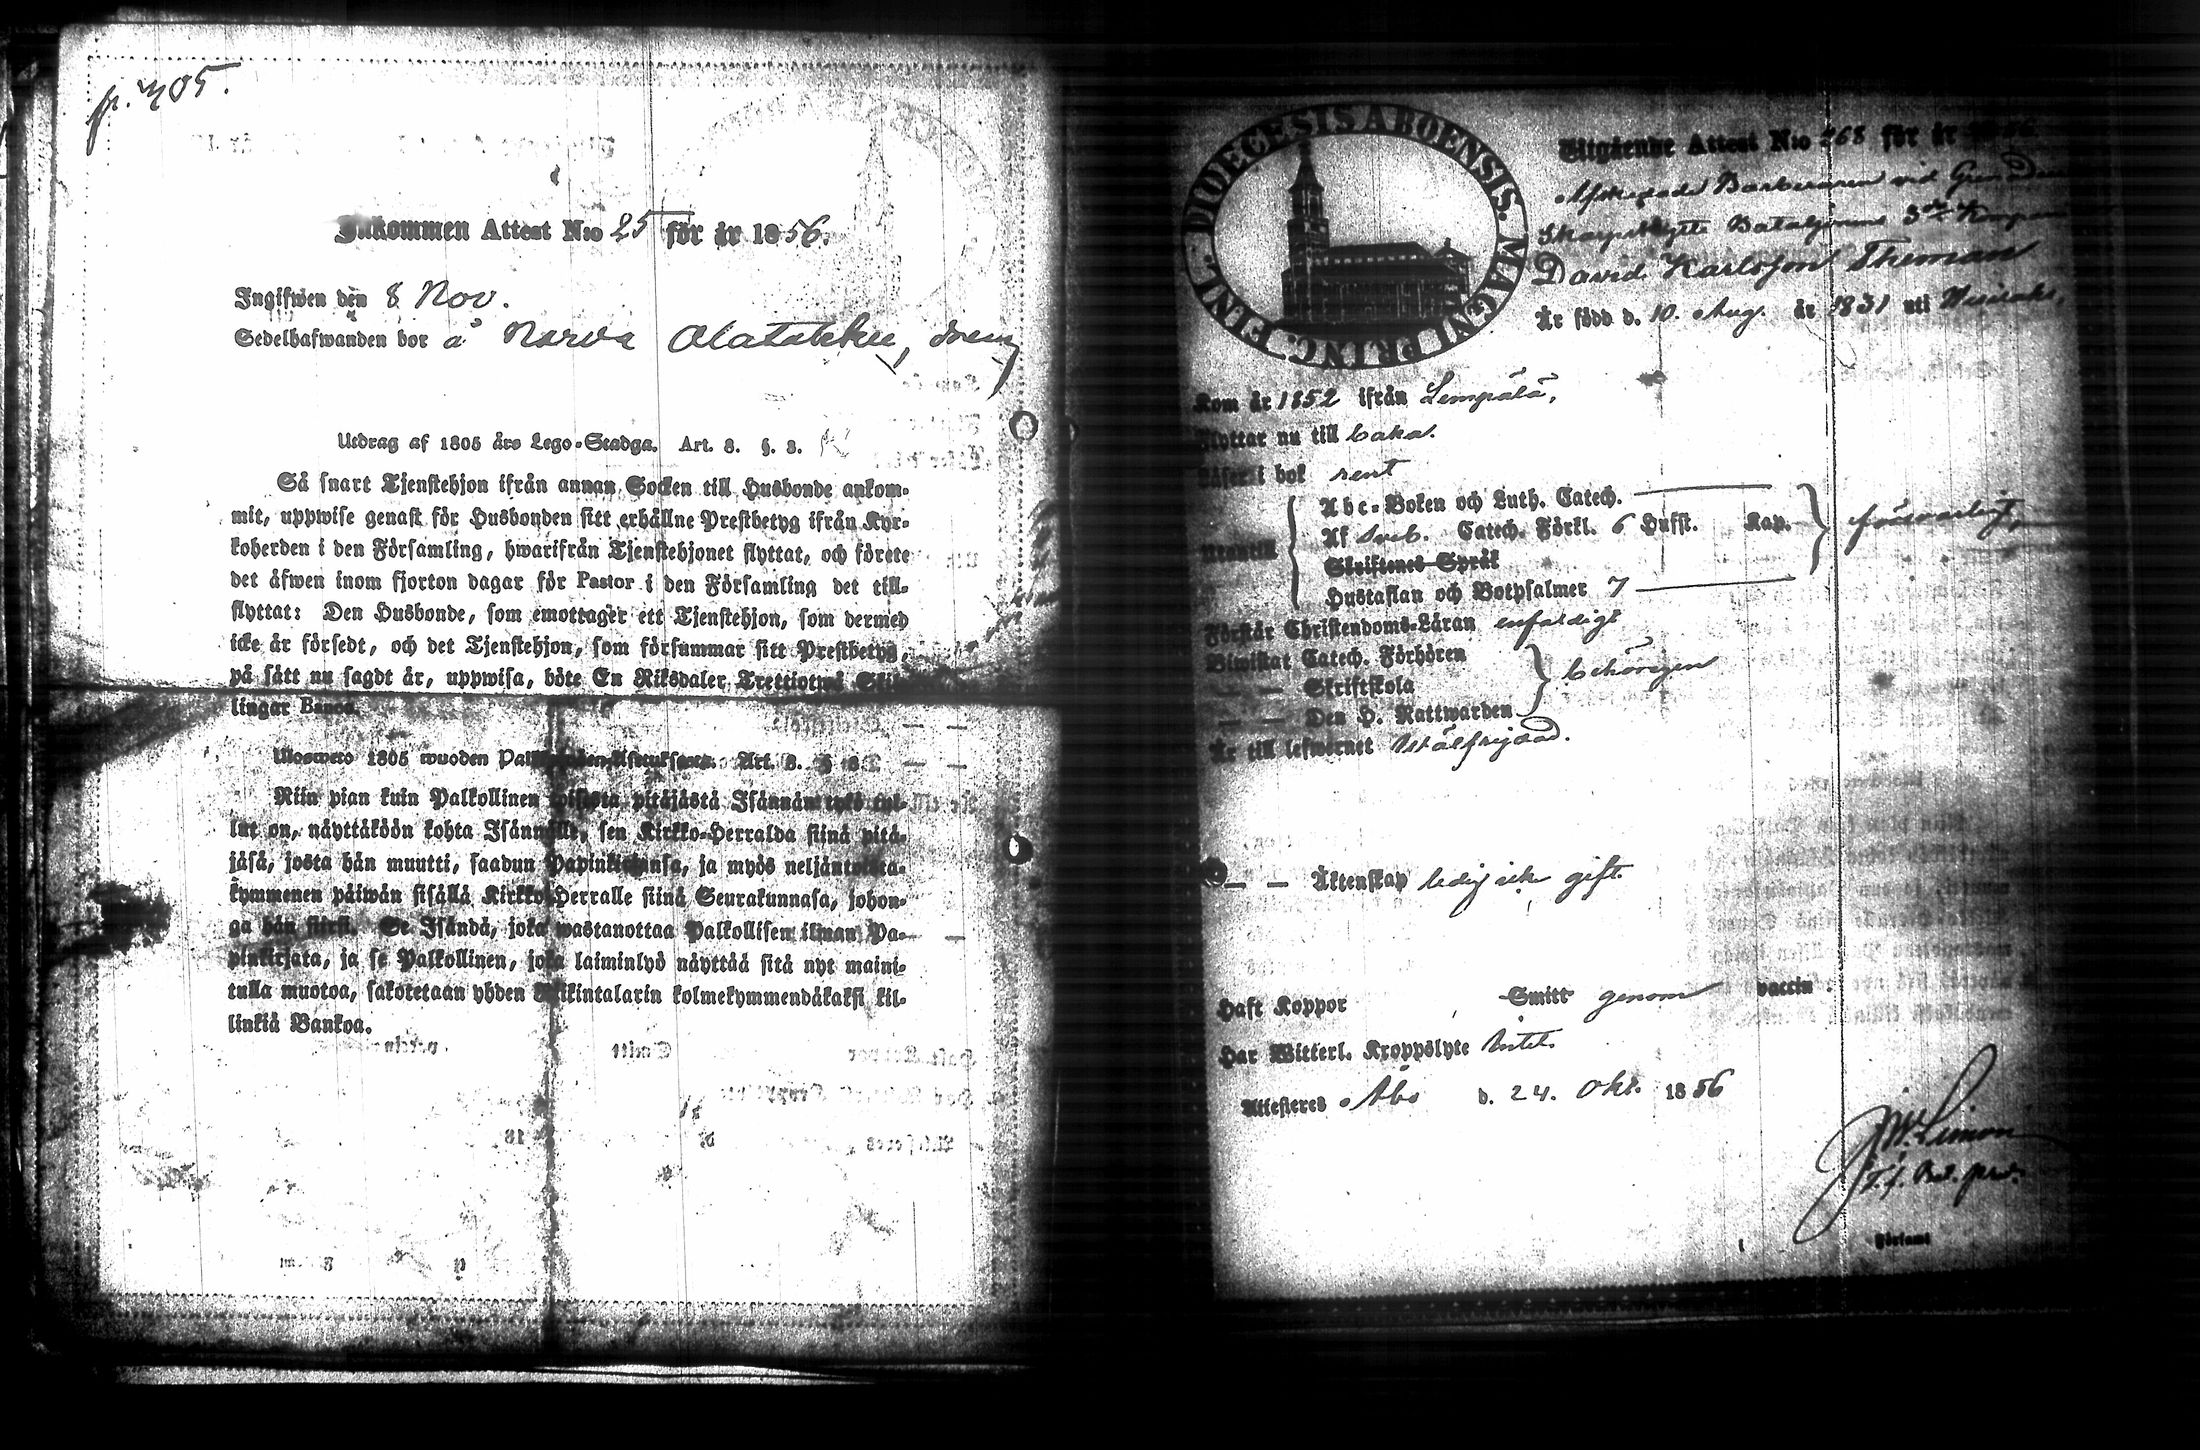 p. 705.
Inkommen Attest N:o 25 för år 1856.
Ingifwen den 8 Nov.
Sedelhafwanden bor å Narva Alatakku, dräng
Utdrag af 1805 års Lego-Stadga. Art. 8. §. 3.
Så snart Tjenstehjon ifrån annan Socken till Husbonde ankom-
mit, uppwise genast för Husbonden sitt erhållne Prestbetyg ifrån Kyr-
koherden i den Församling, hwarifrån Tjenstehjonet flyttat, och förete
det äfwen inom fjorton dagar för Pastor i den Församling det till-
flyttat: Den Husbonde, som emottager ett Tjenstehjon, som dermed
icke är försedt, och det Tjenstehjon, som försummar sitt Prestbetyg,
på sätt nu sagdt är, uppwisa, böte En Riksdaler Trettiotwå Skil-
lingar Banco.
Ulosweto 1805 wuoden Art. 8. §
Niin pian kuin Palkollinen toisesta pitäjästä Isännän tykö tul-
lut on, näyttäköön kohta Isännälle, sen Kirkko-Herralda siinä pitä-
jäsä, josta hän muutti, saadun Papinkirjansa, ja myös neljäntoista-
kymmenen päiwän sisällä Kirkko-Herralle siinä Seurakunnasa, johon-
ga hän siirsi. Se Isändä, joka wastanottaa Palkollisen ilman Pa-
pinkirjata, ja se Palkollinen, joka laiminlyö näyttää sitä nyt maini-
tulla muotoa, sakotetaan yhden Riikintalarin kolmekymmendäkaksi kil-
linkiä Bankoa.
DIOECESIS ABOENSIS. MAGNI PRINC. FINL.
Utgående Attest N:o 268 för år 1856
Afskedade Barberaren vid Gren.
Skarpskytte Bataljonens 3dje Kompani
David Karlsson Theman
Är född d. 10. Aug. år 1831 uti Wesilaks,
Kom år 1852 ifrån Lempälä,
Flyttar nu till baka.
Läser i bok rent
Utantill
Abc-Boken och Luth. Catech.
Af Sveb. Catech. Förkl. 6 Hufst. Kap.
Skriftenes Språk
Hustaflan och Botpsalmer 7
försvarligt,
Förstår Christendoms-Läran enfaldigt
Biwistat Catech. Förhören
— — Skriftskola
— — Den H. Nattwarden
behörigen
Är till lefwernet Wälfrejdad.
— — Äktenskap ledig icke gift.
Haft Koppor Smitt genom vaccin
Har Witterl. Kroppslyte Intet
Attesteras Åbo d. 24. Okt. 1856
Församl